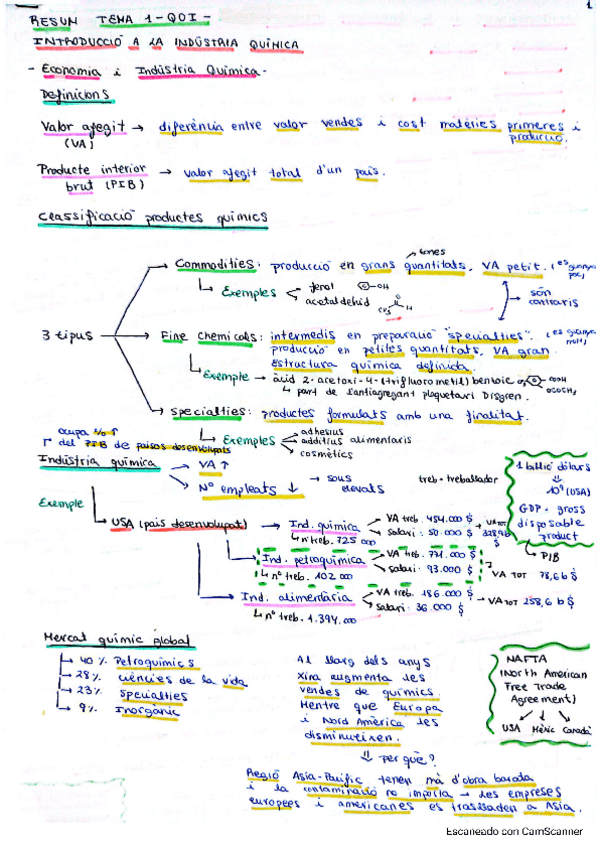 1
RESUM TEMA 1 - QOI -
INTRODUCCIÓ A LA INDÚSTRIA QUÍMICA
- Economia i Indústria Química.
Definicions
Valor afegit → diferència entre valor vendes i cost matèries primeres i
(VA) producció.
Producte interior → valor afegit total d'un país.
brut (PIB)
Classificació productes químics
tones
Commodities: producció en grans quantitats, VA petit. (es guanya
poc)
Exemples fenol -OH
acetaldehid CH3 H
són
contraris
3 tipus
Fine chemicals: intermedis en preparació "specialties". (es guanya
molt)
producció en petites quantitats, VA gran.
Estructura química definida.
Exemple → àcid 2-acetoxi-4-(trifluorometil) benzoic COOH
OCOCH3
part de l'antiagregant plaquetari Disgren.
Specialties: productes formulats amb una finalitat.
Exemples adhesius
additius alimentaris
cosmètics
ocupa % ↑
del PIB de països desenvolupats
Indústria química → VA ↑
Nº empleats ↓ → sous
elevats
treb = treballador
1 billió dòlars
10⁹ (USA)
GDP = gross
disposable
product
PIB
Exemple
USA (país desenvolupat) → Ind. química → VA treb. 454.000 $
salari: 50.000 $
nº treb. 725 000
VA TOT
$
Ind. petroquímica → VA treb. 771.000 $
salari: 93.000 $
nº treb. 102 000
VA TOT 78,6 b $
Ind. alimentària → VA treb. 186.000 $
salari: 36.000 $
→ VA TOT 258,6 b $
nº treb. 1.394.000
Mercat químic global
40 % Petroquímics
28% ciències de la vida
23% specialties
9% Inorgànic
Al llarg dels anys
Xina augmenta les
vendes de químics.
Mentre que Europa
i Nord Amèrica les
disminueixen.
NAFTA
(North American
Free Trade
Agreement)
USA Mèxic Canadà
per què?
Regió Asia-Pacific tenen mà d'obra barata
i la contaminació no importa → les empreses
europees i americanes es traslladen a Asia.
Escaneado con CamScanner